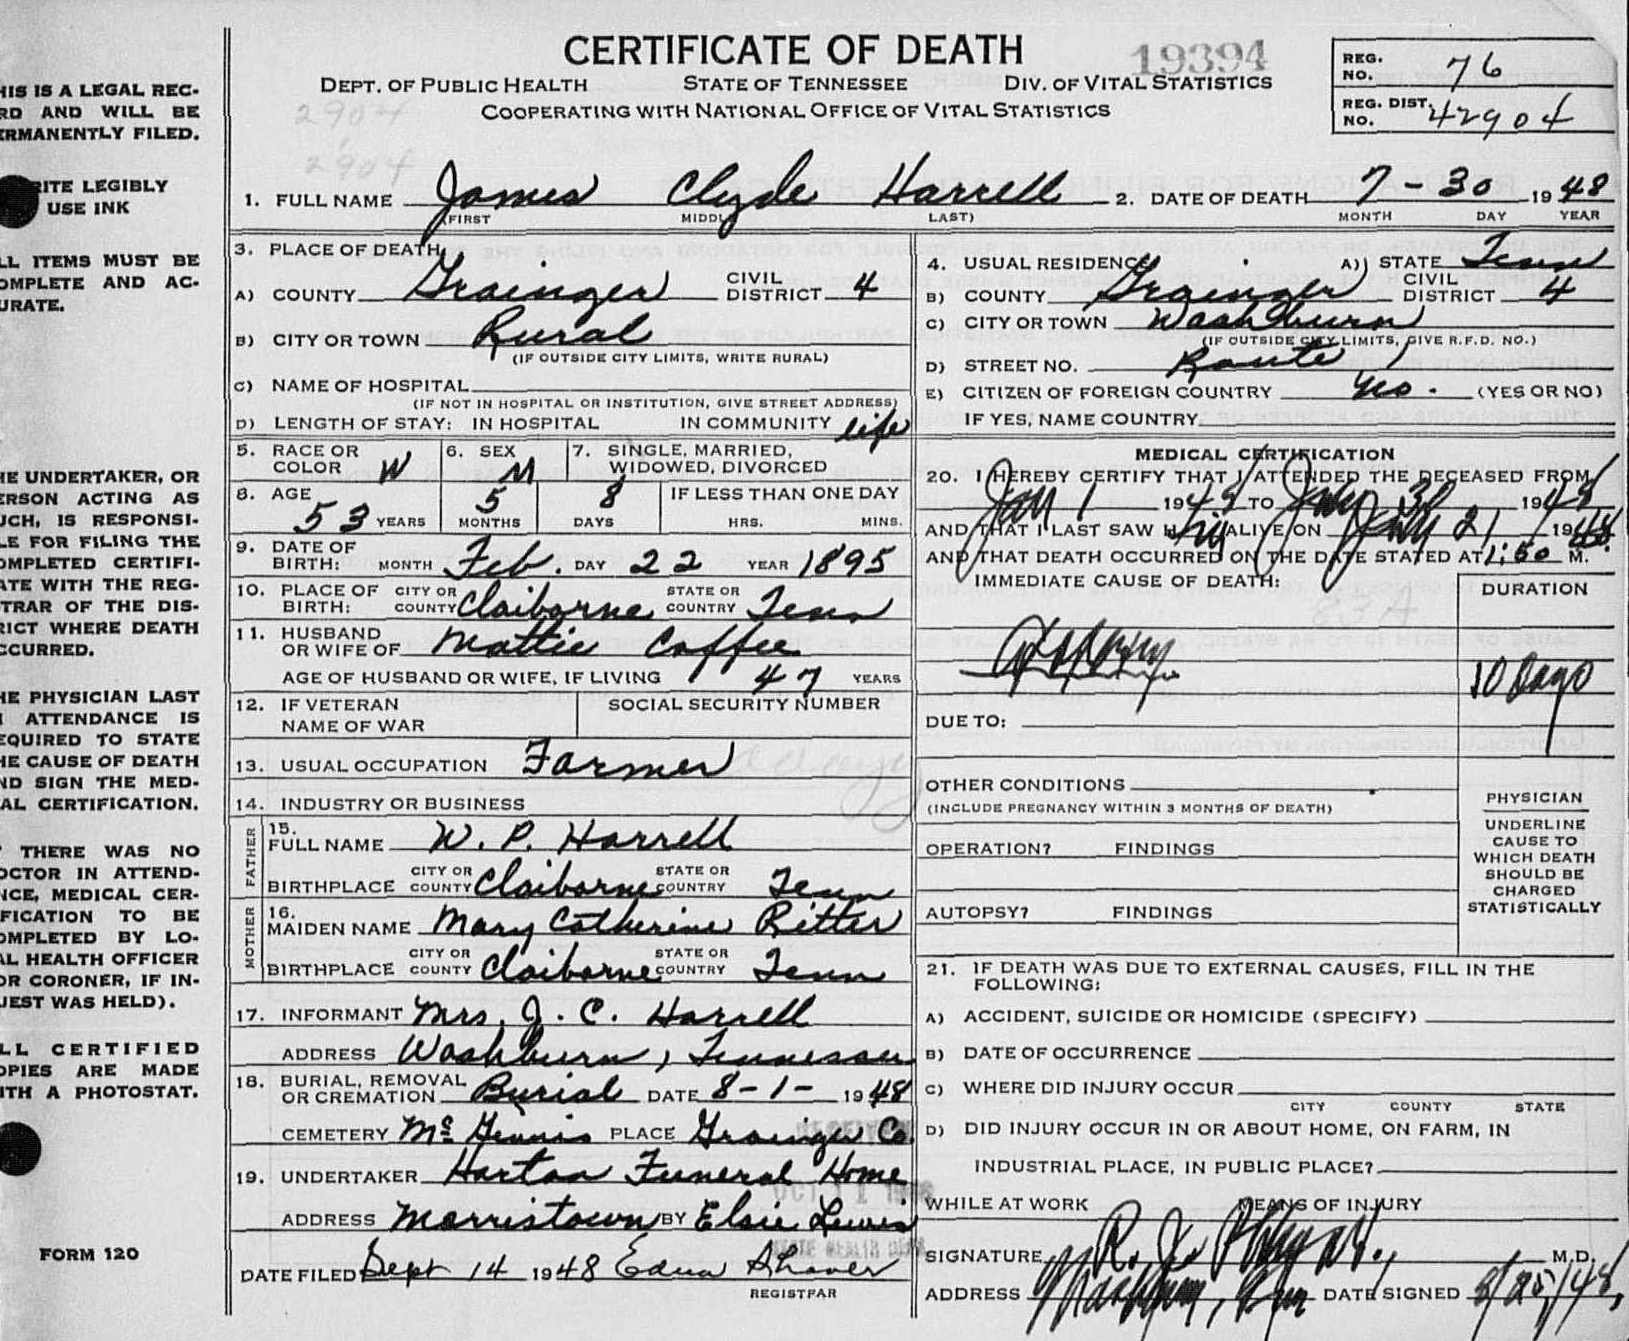 CERTIFICATE OF DEATH
19394
DEPT. OF PUBLIC HEALTH STATE OF TENNESSEE DIV. OF VITAL STATISTICS
COOPERATING WITH NATIONAL OFFICE OF VITAL STATISTICS
REG. NO. 76
REG. DIST. NO. 42904
2904
2904
HIS IS A LEGAL REC-
RD AND WILL BE
ERMANENTLY FILED.
RITE LEGIBLY
USE INK
LL ITEMS MUST BE
OMPLETE AND AC-
URATE.
HE UNDERTAKER, OR
ERSON ACTING AS
UCH, IS RESPONSI-
LE FOR FILING THE
OMPLETED CERTIFI-
ATE WITH THE REG-
TRAR OF THE DIS-
RICT WHERE DEATH
CCURRED.
HE PHYSICIAN LAST
ATTENDANCE IS
EQUIRED TO STATE
HE CAUSE OF DEATH
ND SIGN THE MED-
AL CERTIFICATION.
THERE WAS NO
OCTOR IN ATTEND-
NCE, MEDICAL CER-
IFICATION TO BE
OMPLETED BY LO-
AL HEALTH OFFICER
OR CORONER, IF IN-
UEST WAS HELD).
LL CERTIFIED
OPIES ARE MADE
ITH A PHOTOSTAT.
FORM 120
1. FULL NAME James Clyde Harrell 2. DATE OF DEATH 7-30 1948
(FIRST MIDDLE LAST) MONTH DAY YEAR
3. PLACE OF DEATH
A) COUNTY Grainger CIVIL DISTRICT 4
B) CITY OR TOWN Rural
(IF OUTSIDE CITY LIMITS, WRITE RURAL)
C) NAME OF HOSPITAL
(IF NOT IN HOSPITAL OR INSTITUTION, GIVE STREET ADDRESS)
D) LENGTH OF STAY: IN HOSPITAL IN COMMUNITY life
4. USUAL RESIDENCE A) STATE Tenn
B) COUNTY Grainger CIVIL DISTRICT 4
C) CITY OR TOWN Washburn
(IF OUTSIDE CITY LIMITS, GIVE R.F.D. NO.)
D) STREET NO. Route 1
E) CITIZEN OF FOREIGN COUNTRY (YES OR NO)
IF YES, NAME COUNTRY
5. RACE OR COLOR W 6. SEX M 7. SINGLE, MARRIED, WIDOWED, DIVORCED
8. AGE 53 YEARS 5 MONTHS 8 DAYS IF LESS THAN ONE DAY HRS. MINS.
9. DATE OF BIRTH: MONTH Feb. DAY 22 YEAR 1895
10. PLACE OF BIRTH: CITY OR COUNTY Claiborne STATE OR COUNTRY Tenn
11. HUSBAND OR WIFE OF Mattie Coffee
AGE OF HUSBAND OR WIFE, IF LIVING 47 YEARS
12. IF VETERAN NAME OF WAR SOCIAL SECURITY NUMBER
13. USUAL OCCUPATION Farmer
14. INDUSTRY OR BUSINESS
FATHER
15. FULL NAME W. P. Harrell
BIRTHPLACE CITY OR COUNTY Claiborne STATE OR COUNTRY Tenn
MOTHER
16. MAIDEN NAME Mary Catherine Ritter
BIRTHPLACE CITY OR COUNTY Claiborne STATE OR COUNTRY Tenn
17. INFORMANT Mrs. J. C. Harrell
ADDRESS Washburn, Tennessee
18. BURIAL, REMOVAL OR CREMATION Burial DATE 8-1- 1948
CEMETERY PLACE Grainger Co.
19. UNDERTAKER Funeral Home
ADDRESS Morristown BY Elsie Lewis
DATE FILED Sept 14 1948 Edna Shaver
REGISTRAR
MEDICAL CERTIFICATION
20. I HEREBY CERTIFY THAT I ATTENDED THE DECEASED FROM
1 1948 TO July 30 1948
AND THAT I LAST SAW HIM ALIVE ON July 21 1948
AND THAT DEATH OCCURRED ON THE DATE STATED AT 1:50 M.
IMMEDIATE CAUSE OF DEATH: DURATION
83A
10 Days
DUE TO:
OTHER CONDITIONS
(INCLUDE PREGNANCY WITHIN 3 MONTHS OF DEATH)
OPERATION? FINDINGS
AUTOPSY? FINDINGS
PHYSICIAN
UNDERLINE
CAUSE TO
WHICH DEATH
SHOULD BE
CHARGED
STATISTICALLY
21. IF DEATH WAS DUE TO EXTERNAL CAUSES, FILL IN THE
FOLLOWING:
A) ACCIDENT, SUICIDE OR HOMICIDE (SPECIFY)
B) DATE OF OCCURRENCE
C) WHERE DID INJURY OCCUR
CITY COUNTY STATE
D) DID INJURY OCCUR IN OR ABOUT HOME, ON FARM, IN
INDUSTRIAL PLACE, IN PUBLIC PLACE?
WHILE AT WORK MEANS OF INJURY
SIGNATURE R. J. M.D.
ADDRESS Washburn, DATE SIGNED 8/25/48